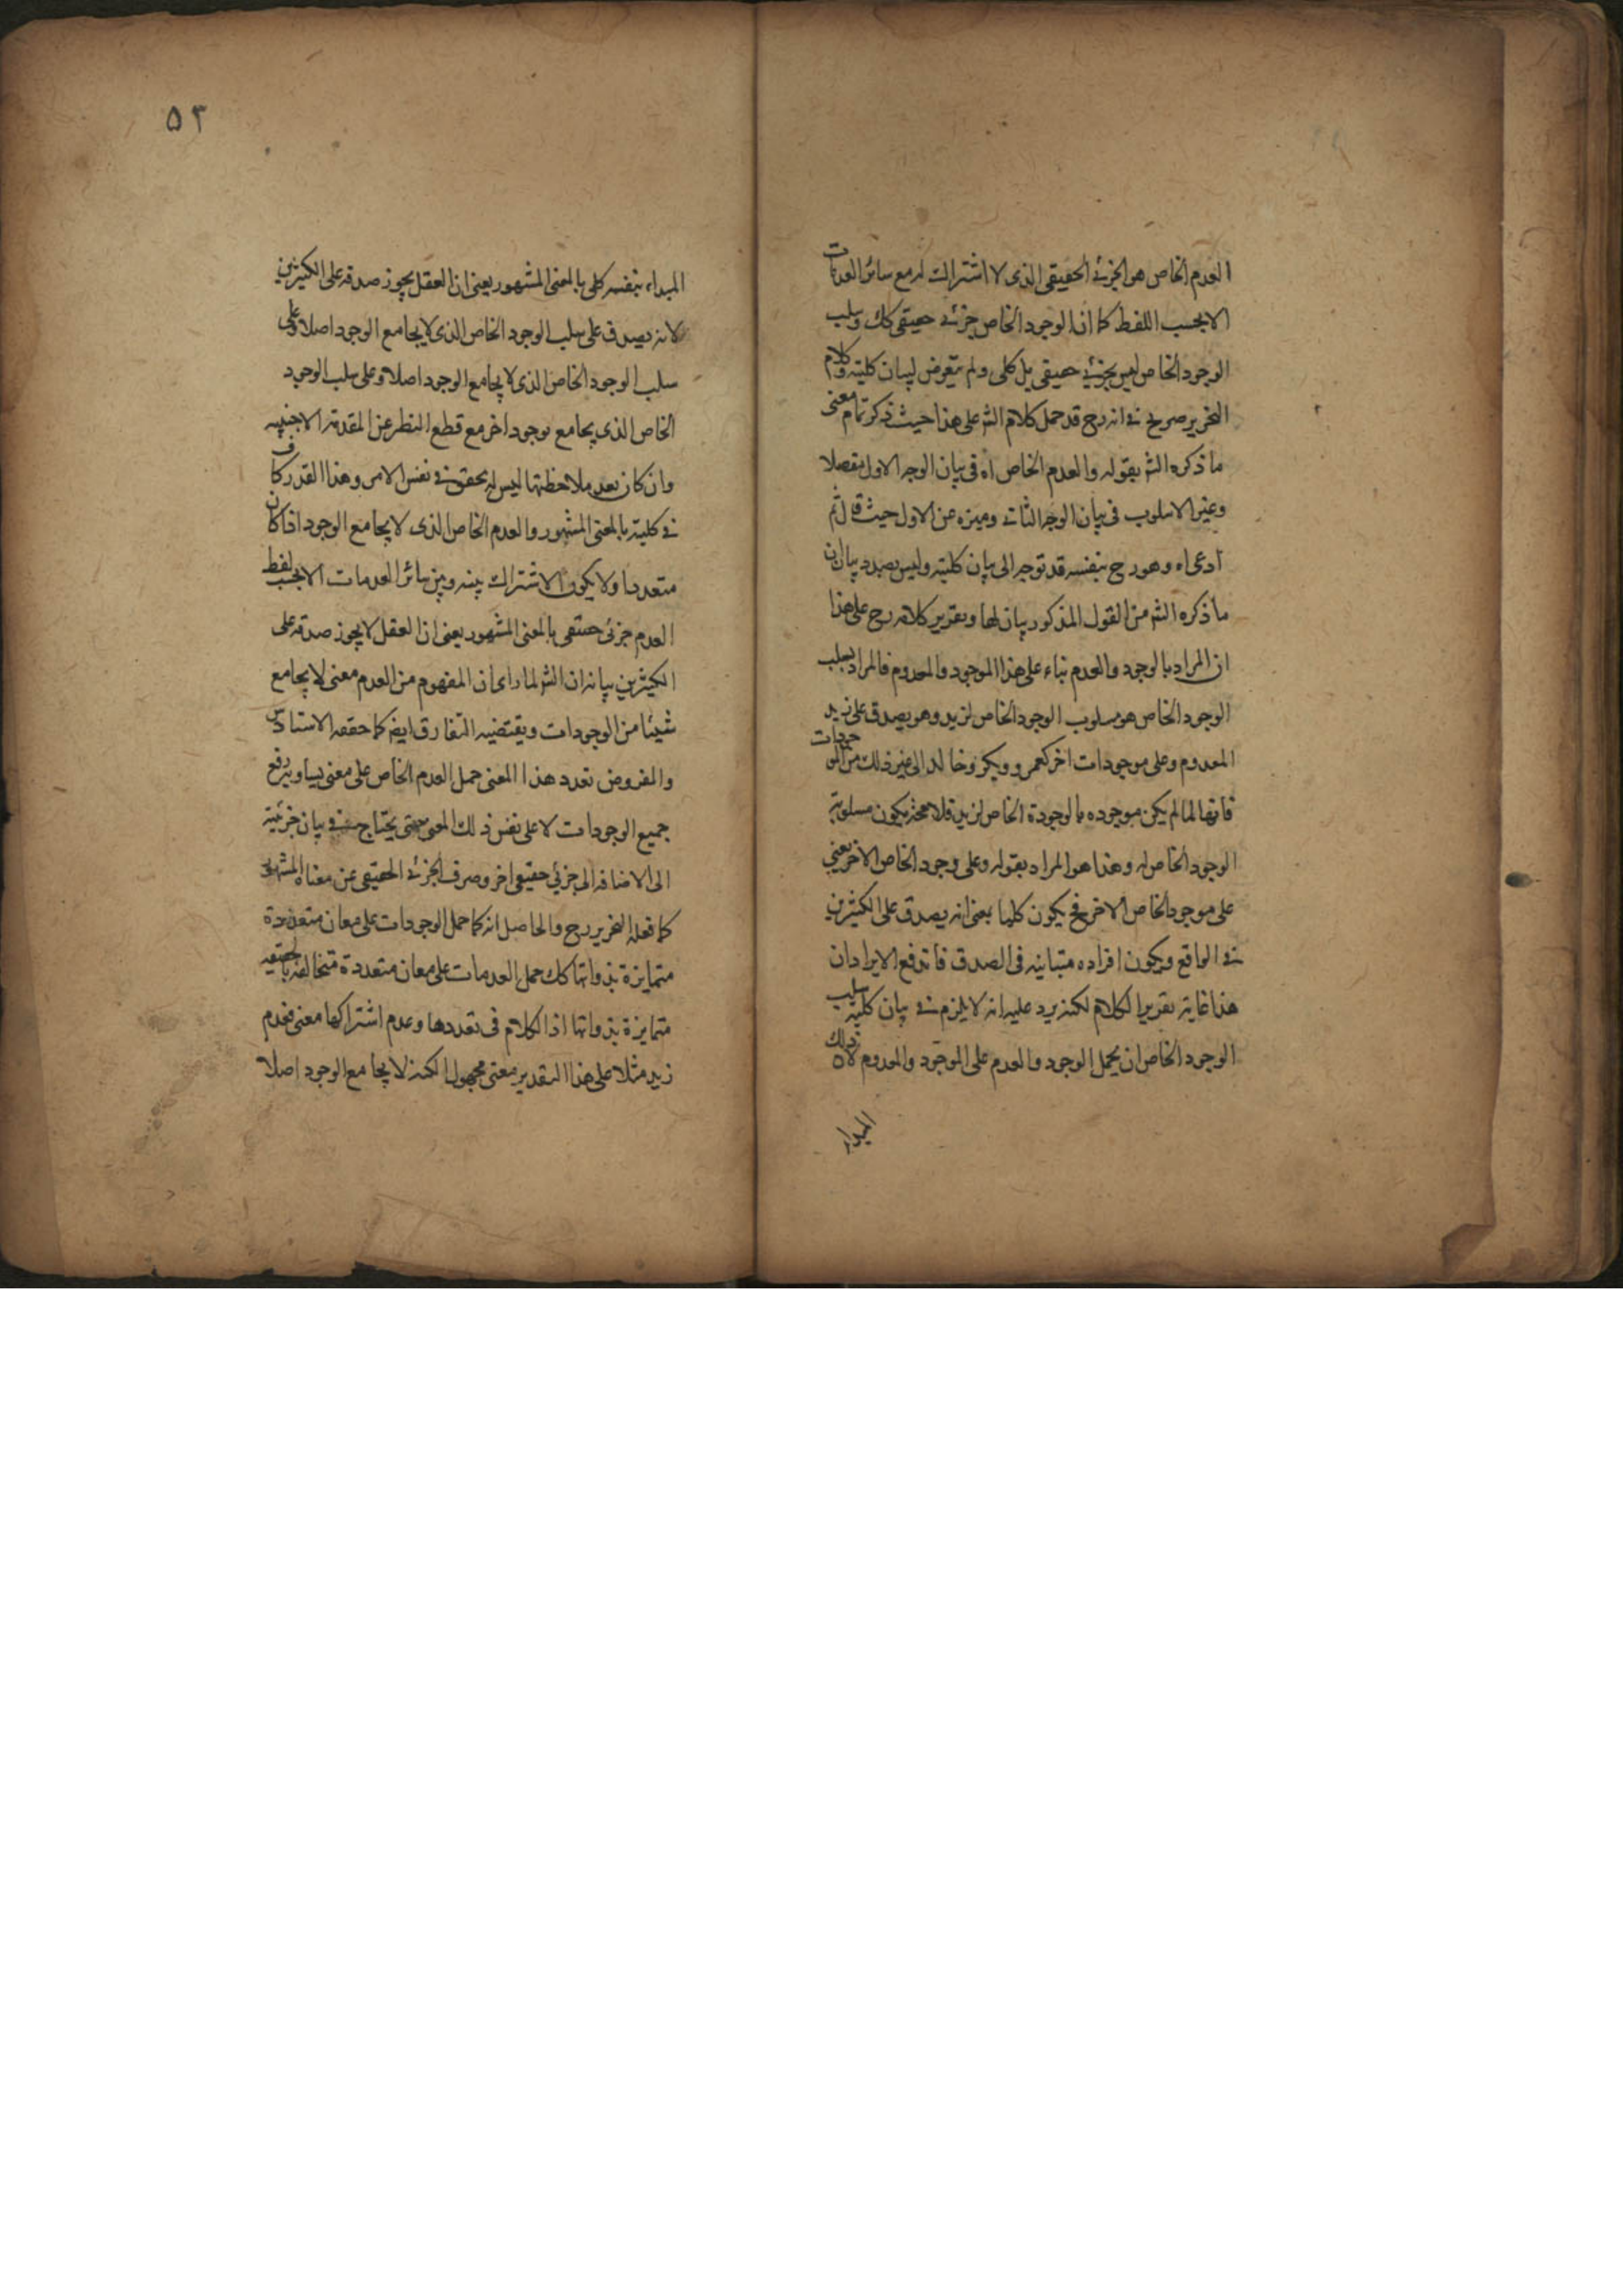 العدم الخاص هو الجزئے الحقيقى الذى لا اشتراك له مع سائر العدمات
الا بحسب اللفظ كما ان الوجود الخاص جزئے حقيقى كك وسلب
الوجود الخاص ليس بجزئے حقيقى بل كلى ولم يتعرض لبيان كليته وكلام
النحرير صريح فے انه رح قد حمل كلام الش على هذا حيث ذكر تمام معنى
ما ذكره الش بقوله والعدم الخاص اه فى بيان الوجه الاول مفصلا
وغير الاسلوب فى بيان الوجه الثانے وميزه عن الاول حيث قال ثم
ادعى اه وهو رح بنفسه قد توجه الى بيان كليته وليس بصدد بيان ان
ما ذكره الش من القول المذكور بيان لها وتقرير كلامه رح على هذا
ان المراد بالوجود والعدم بناء على هذا الموجود والمعدوم فالمراد بسلب
الوجود الخاص هو مسلوب الوجود الخاص لزيد وهو يصدق على زيد
المعدوم وعلى موجودات اخر كعمرو وبكر وخالد الى غير ذلك من الموجودات
فانها لما لم يكن موجوده بالوجودة الخاص لزيد فلا محة يكون مسلوبة
الوجود الخاص له وهذا هو المراد بقوله وعلى وجود الخاص الاخر يعنى
على موجود الخاص الاخر فح يكون كليا بمعنى انه يصدق على الكثيرين
فے الواقع ويكون افراده متباينه فى الصدق فاندفع الايرادان
هذا غاية تقرير الكلام لكنه يرد عليه انه لا يلزم فے بيان كلية سلب
الوجود الخاص ان يحمل الوجود والعدم على الموجود والمعدوم لان ذلك
٥٣
المبداء بنفسه كلى بالمعنى المشهور يعنى ان العقل يجوز صدقه على الكثيرين
لانه يصدق على سلب الوجود الخاص الذى لا يجامع الوجود اصلا وعلى
سلب الوجود الخاص الذى لا يجامع الوجود اصلا وعلى سلب الوجود
الخاص الذى يجامع بوجود اخر مع قطع النظر عن المقدمة الاجنبيه
وان كان بعد ملاحظتها ليس له تحقق فے نفس الامر وهذا القدر كاف
فے كليته بالمعنى المشهور والعدم الخاص الذى لا يجامع الوجود اذا كان
متعددا ولا يكون الاشتراك بينه وبين سائر العدمات الا بحسب لفظ
العدم جزئى حقيقى بالمعنى المشهور يعنى ان العقل لا يجوز صدقه على
الكثيرين بيانه ان الش لما راى ان المفهوم من العدم معنى لا يجامع
شيئا من الوجودات ويقتضيه التفارق ايض كما حققه الاستاد
والمفروض تعدد هذا المعنى حمل العدم الخاص على معنى يساوى رفع
جميع الوجودات لا على نفس ذلك المعنى حتى يحتاج فے بيان جزئيته
الى الاضافه الى جزئي حقيقى اخر وصرف الجزئے الحقيقى عن معناه المشهور
كما فعله النحرير رح والحاصل انه كما حمل الوجودات على معان متعددة
متمايزة بذواتها كك حمل العدمات على معان متعددة متخالفه بالحقيقه
متمايزة بذواتها اذ الكلام فى تعددها وعدم اشتراكها معنى فعدم
زيد مثلا على هذا التقدير معنى مجهول الكنه لا يجامع الوجود اصلا